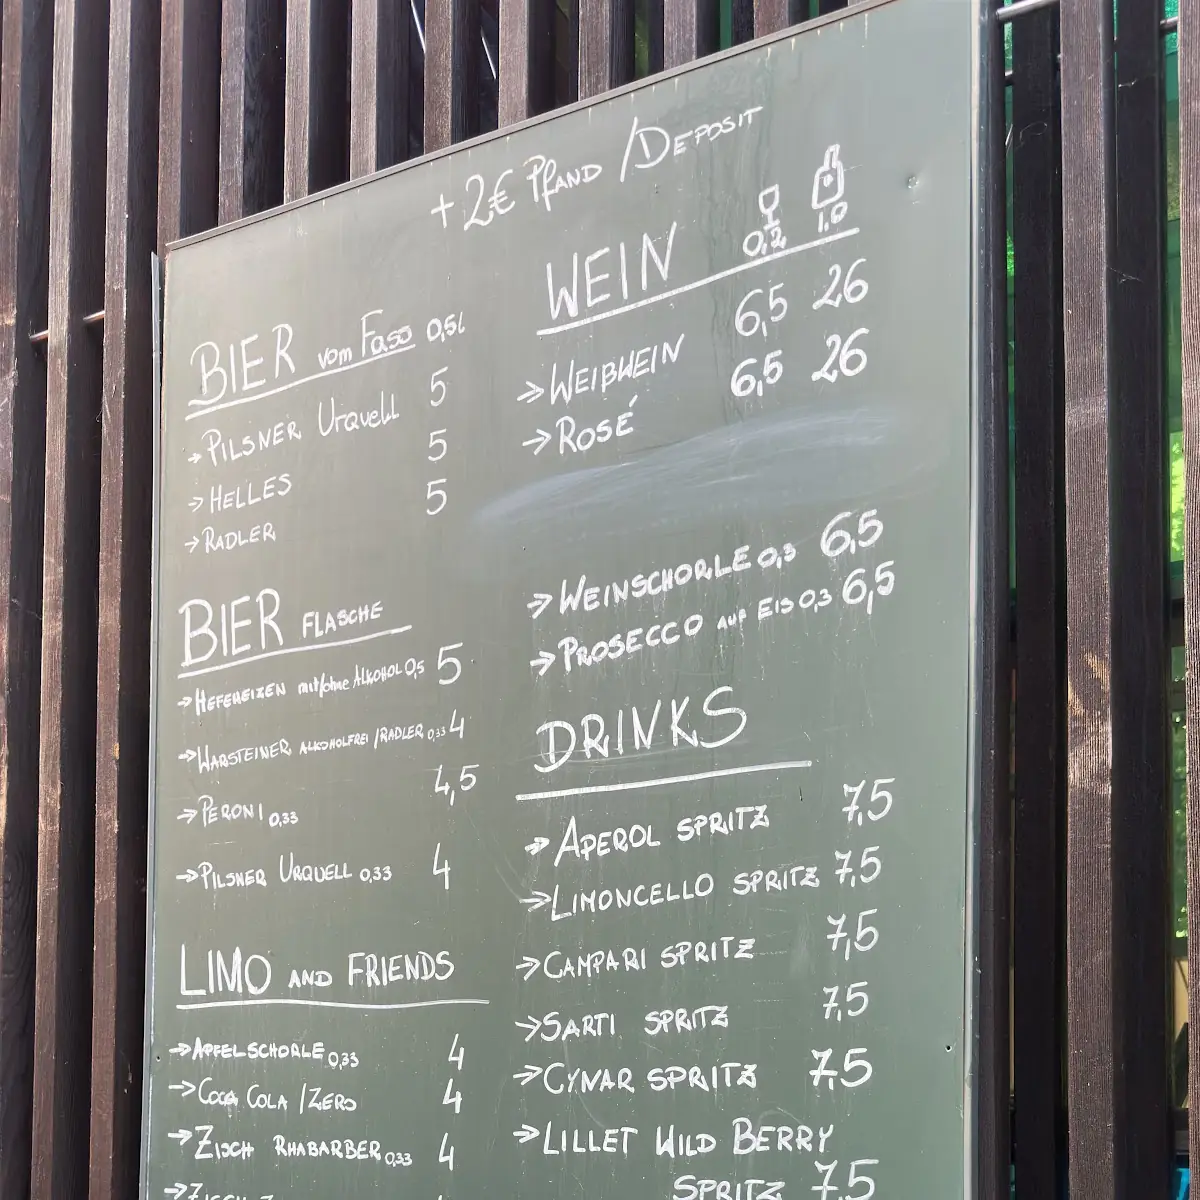 + 2€ Pfand / Deposit
BIER vom Fass 0,5l
→ PILSNER Urquell 5
→ HELLES 5
→ RADLER 5
BIER FLASCHE
→ HEFEWEIZEN mit/ohne ALKOHOL 0,5 5
→ WARSTEINER ALKOHOLFREI / RADLER 0,33 4
→ PERONI 0,33 4,5
→ PILSNER URQUELL 0,33 4
LIMO AND FRIENDS
→ APFELSCHORLE 0,33 4
→ COCA COLA / ZERO 4
→ ZISCH RHABARBER 0,33 4
WEIN 0,2 1,0
→ WEIßWEIN 6,5 26
→ ROSÉ 6,5 26
→ WEINSCHORLE 0,3 6,5
→ PROSECCO auf EIS 0,3 6,5
DRINKS
→ APEROL SPRITZ 7,5
→ LIMONCELLO SPRITZ 7,5
→ CAMPARI SPRITZ 7,5
→ SARTI SPRITZ 7,5
→ CYNAR SPRITZ 7,5
→ LILLET WILD BERRY
SPRITZ 7,5